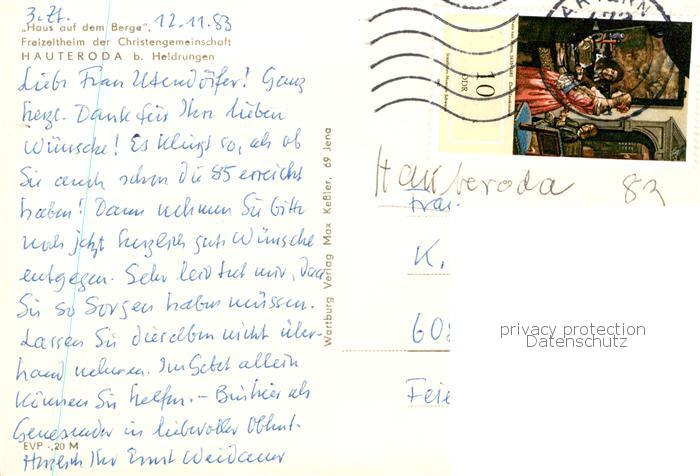 z.Zt.
„Haus auf dem Berge", 12.11.83
Freizeitheim der Christengemeinschaft
HAUTERODA b. Heldrungen
Liebe Frau Utendörfer! Ganz
herzl. Dank für Ihre lieben
Wünsche! Es klingt so, als ob
Sie auch schon die 85 erreicht
haben! Dann nehmen Sie bitte
noch jetzt herzlich gute Wünsche
entgegen. Sehr leid tut mir, dass
Sie so Sorgen haben müssen.
Lassen Sie dieselben nicht über-
hand nehmen. Im Gebet allein
können Sie helfen. – Bin hier als
Genesender in liebevoller Obhut.
EVP -,20 M
Herzlich Ihr Ernst Weidauer
Wartburg Verlag Max Keßler, 69 Jena
10
DDR
ARTERN
Hauteroda 83
Frau
K.
608
Feie
privacy protection
Datenschutz